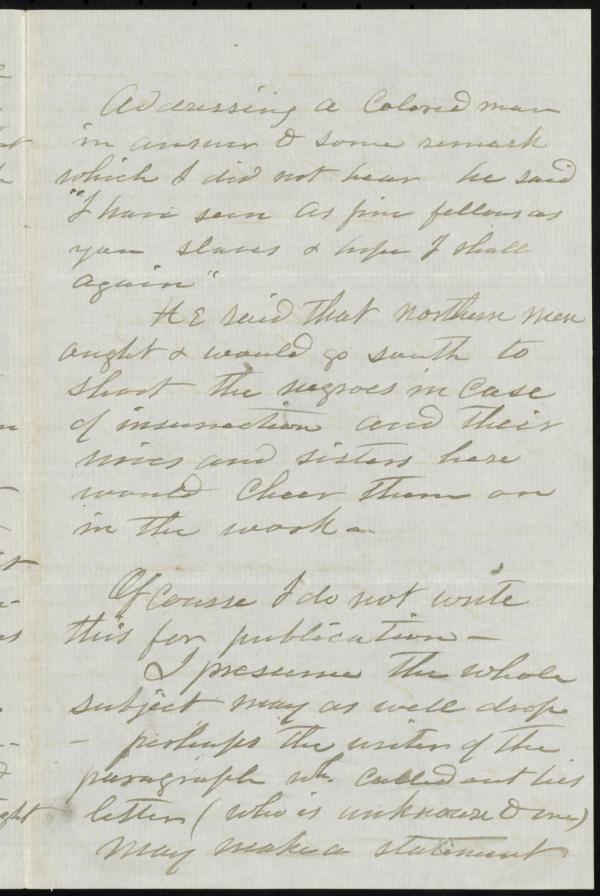 Addressing a Colored man
in answer to some remark
which I did not hear he said
"I have seen as fine fellows as
you slaves & hope I shall
again"
He said that northern men
ought & would go south to
shoot the negroes in case
of insurrection and their
wives and sisters here
would cheer them on
in the work –
Of course I do not write
this for publication –
I presume the whole
subject may as well drop
– perhaps the writer of the
paragraph wh. called out his
letter (who is unknown to me)
may make a statement